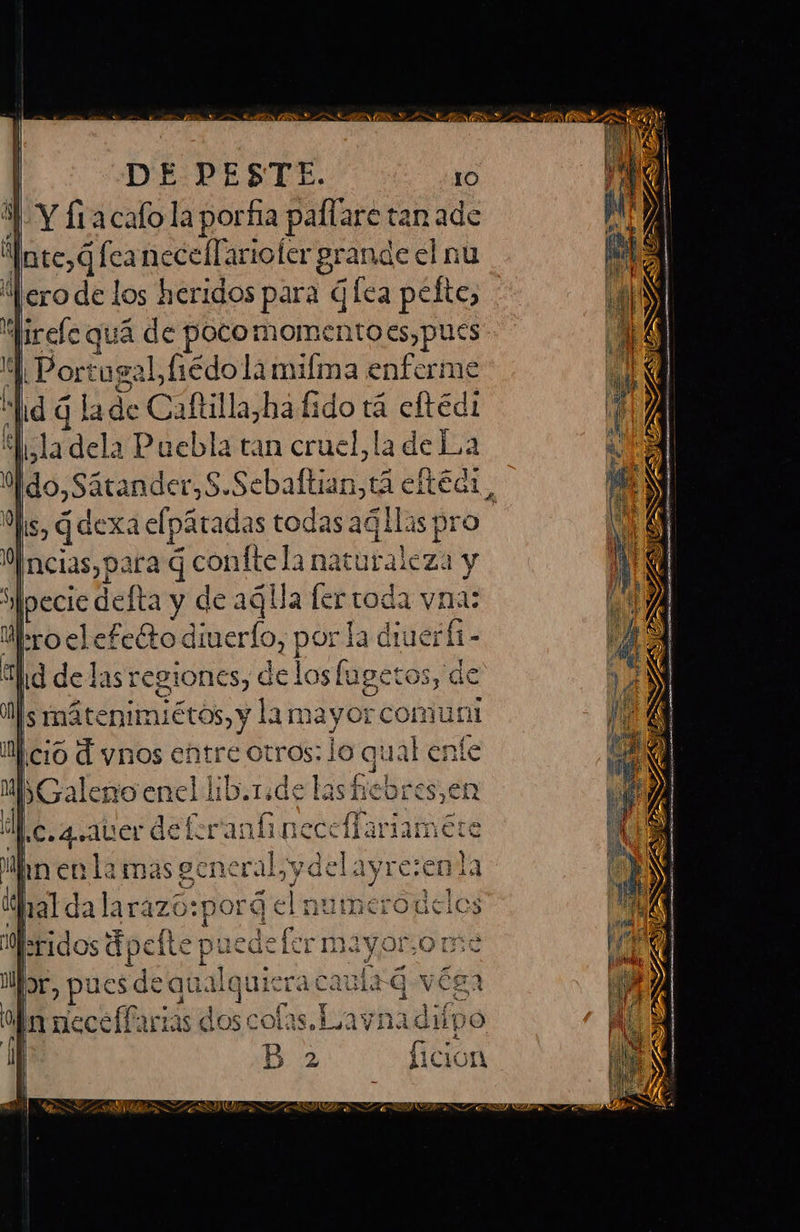 DE PESTE. 10
Y ſi acaſo la porfia paſſare tan ade
nte, q̃ ſea neceſſario ſer grande el nu
ero de los heridos para q̃ ſea peſte,
ireſe quã de poco momento es, pues
Portugal, ſiẽdo la miſma enferme
id q̃ la de Caſtilla, ha ſido tã eſtẽdi
la dela Puebla tan cruel, la de La
do, Sãtander, S. Sebaſtian, tã eſtẽdi
is, q̃ dexa eſpãtadas todas aq̃llas pro
ncias, para q̃ conſte la naturaleza y
pecie deſta y de aq̃lla ſer toda vna:
ro el efecto diuerſo, por la diuerſi-
id de las regiones, de los ſugetos, de
s mãtenimiẽtos, y la mayor comuni
ciõ đ vnos entre otros: lo qual enſe
Galeno en el lib. 1. de las fiebres, en
c. 4. auer de ſer anſi neceſſariamẽte
n en la mas general, y del ayre: en la
ual da la razõ: porq̃ el numero de los
ridos đ peſte puede ſer mayor, o me
or, pues de qualquiera cauſa q̃ vẽga
n neceſſarias dos coſas. La vna diſpo
B 2 ſicion